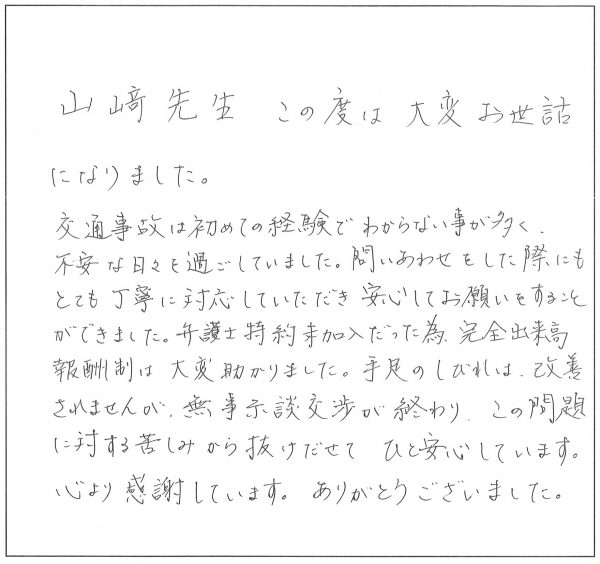 山﨑先生 この度は 大変お世話
になりました。
交通事故は初めての経験でわからない事が多く、
不安な日々を過ごしていました。問いあわせをした際にも
とても丁寧に対応していただき安心してお願いをすること
ができました。弁護士特約未加入だった為、完全出来高
報酬制は大変助かりました。手足のしびれは、改善
されませんが、無事示談交渉が終わり、この問題
に対する苦しみから抜けだせて ひと安心しています。
心より感謝しています。ありがとうございました。